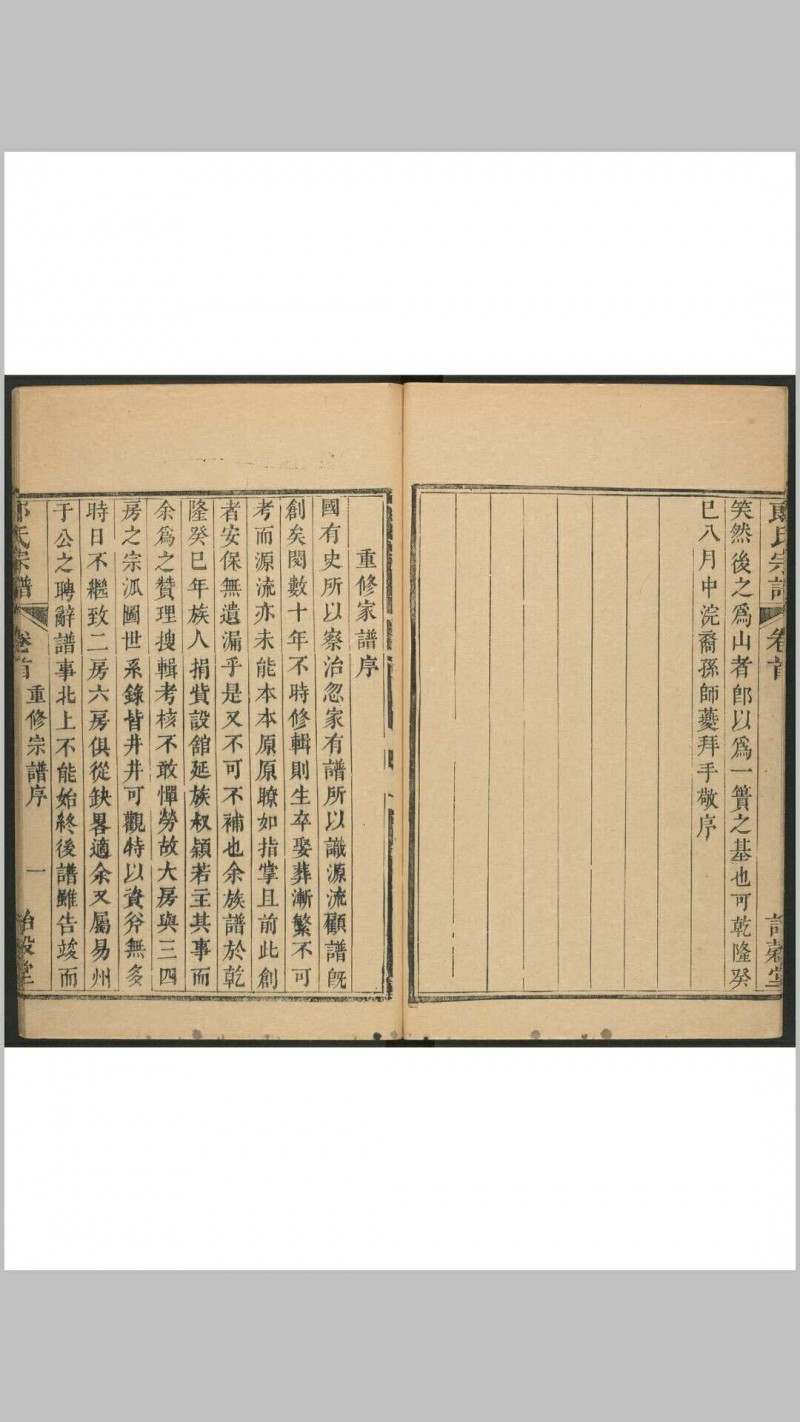 氏宗譜
卷首
詒穀堂
笑然後之爲山者卽以爲一簣之基也可乾隆癸
巳八月中浣裔孫師夔拜手敬序
重修家譜序
國有史所以察治忽家有譜所以識源流顧譜旣
創矣閱數十年不時修輯則生卒娶葬漸繁不可
考而源流亦未能本本原原瞭如指掌且前此創
者安保無遺漏乎是又不可不補也余族譜於乾
隆癸巳年族人捐貲設舘延族叔穎若主其事而
余爲之贊理搜輯考核不敢憚勞故大房與三四
房之宗派圖世系錄皆井井可觀特以資斧無多
時日不繼致二房六房俱從缺畧適余又屬易州
于公之聘辭譜事北上不能始終後譜雖告竣而
氏宗譜
卷首
重修宗譜序
一
詒穀堂